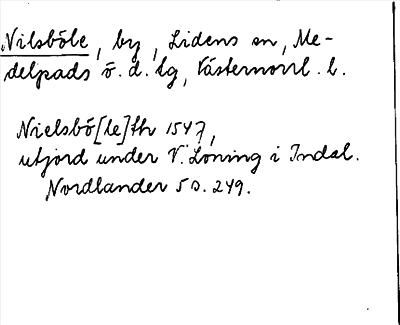 Nilsböle, by, Lidens sn, Me-
delpads ö. d. tg, Västernorrl. l.
Nielsbö[le]thr 1547,
utjord under V. Löning i Indal.
Nordlander 5 s. 249.